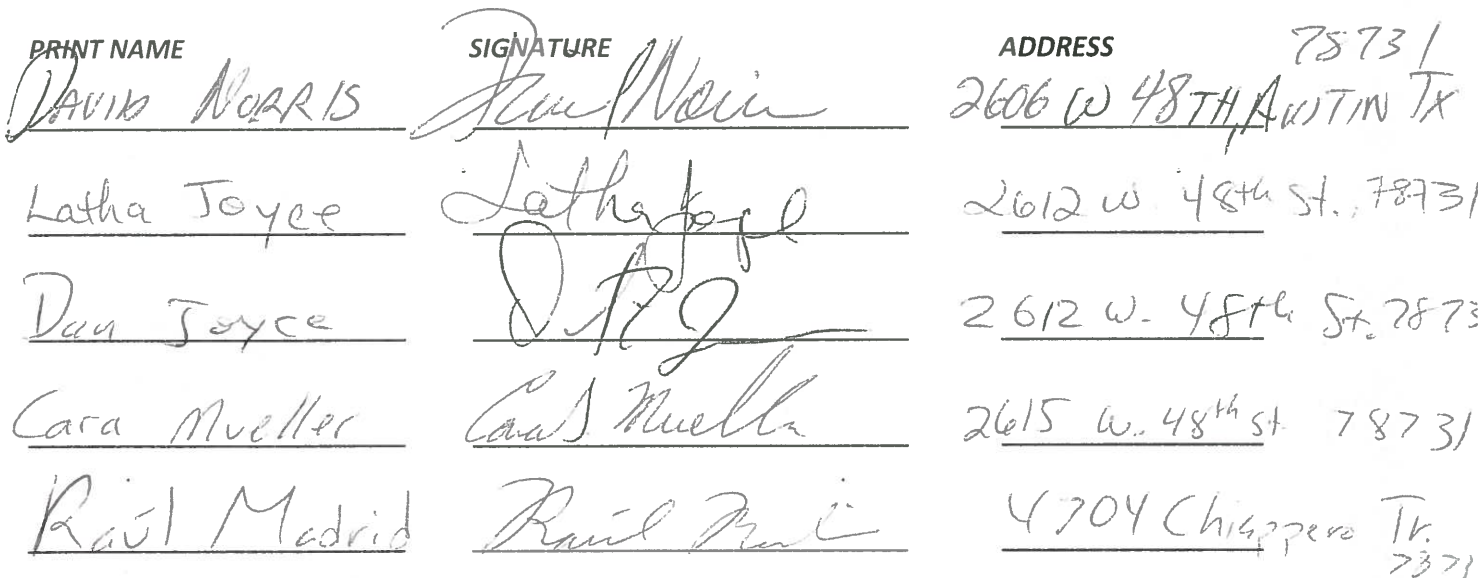 PRINT NAME SIGNATURE ADDRESS 78731
DAVID NORRIS David Norris 2606 W 48TH, AUSTIN TX
Latha Joyce Latha Joyce 2612 W. 48th St. 78731
Dan Joyce 2612 W. 48th St. 7873
Cara Mueller Cara S Mueller 2615 W. 48th St 78731
Raúl Madrid Raúl Madrid 4704 Chiappero Tr.
7873